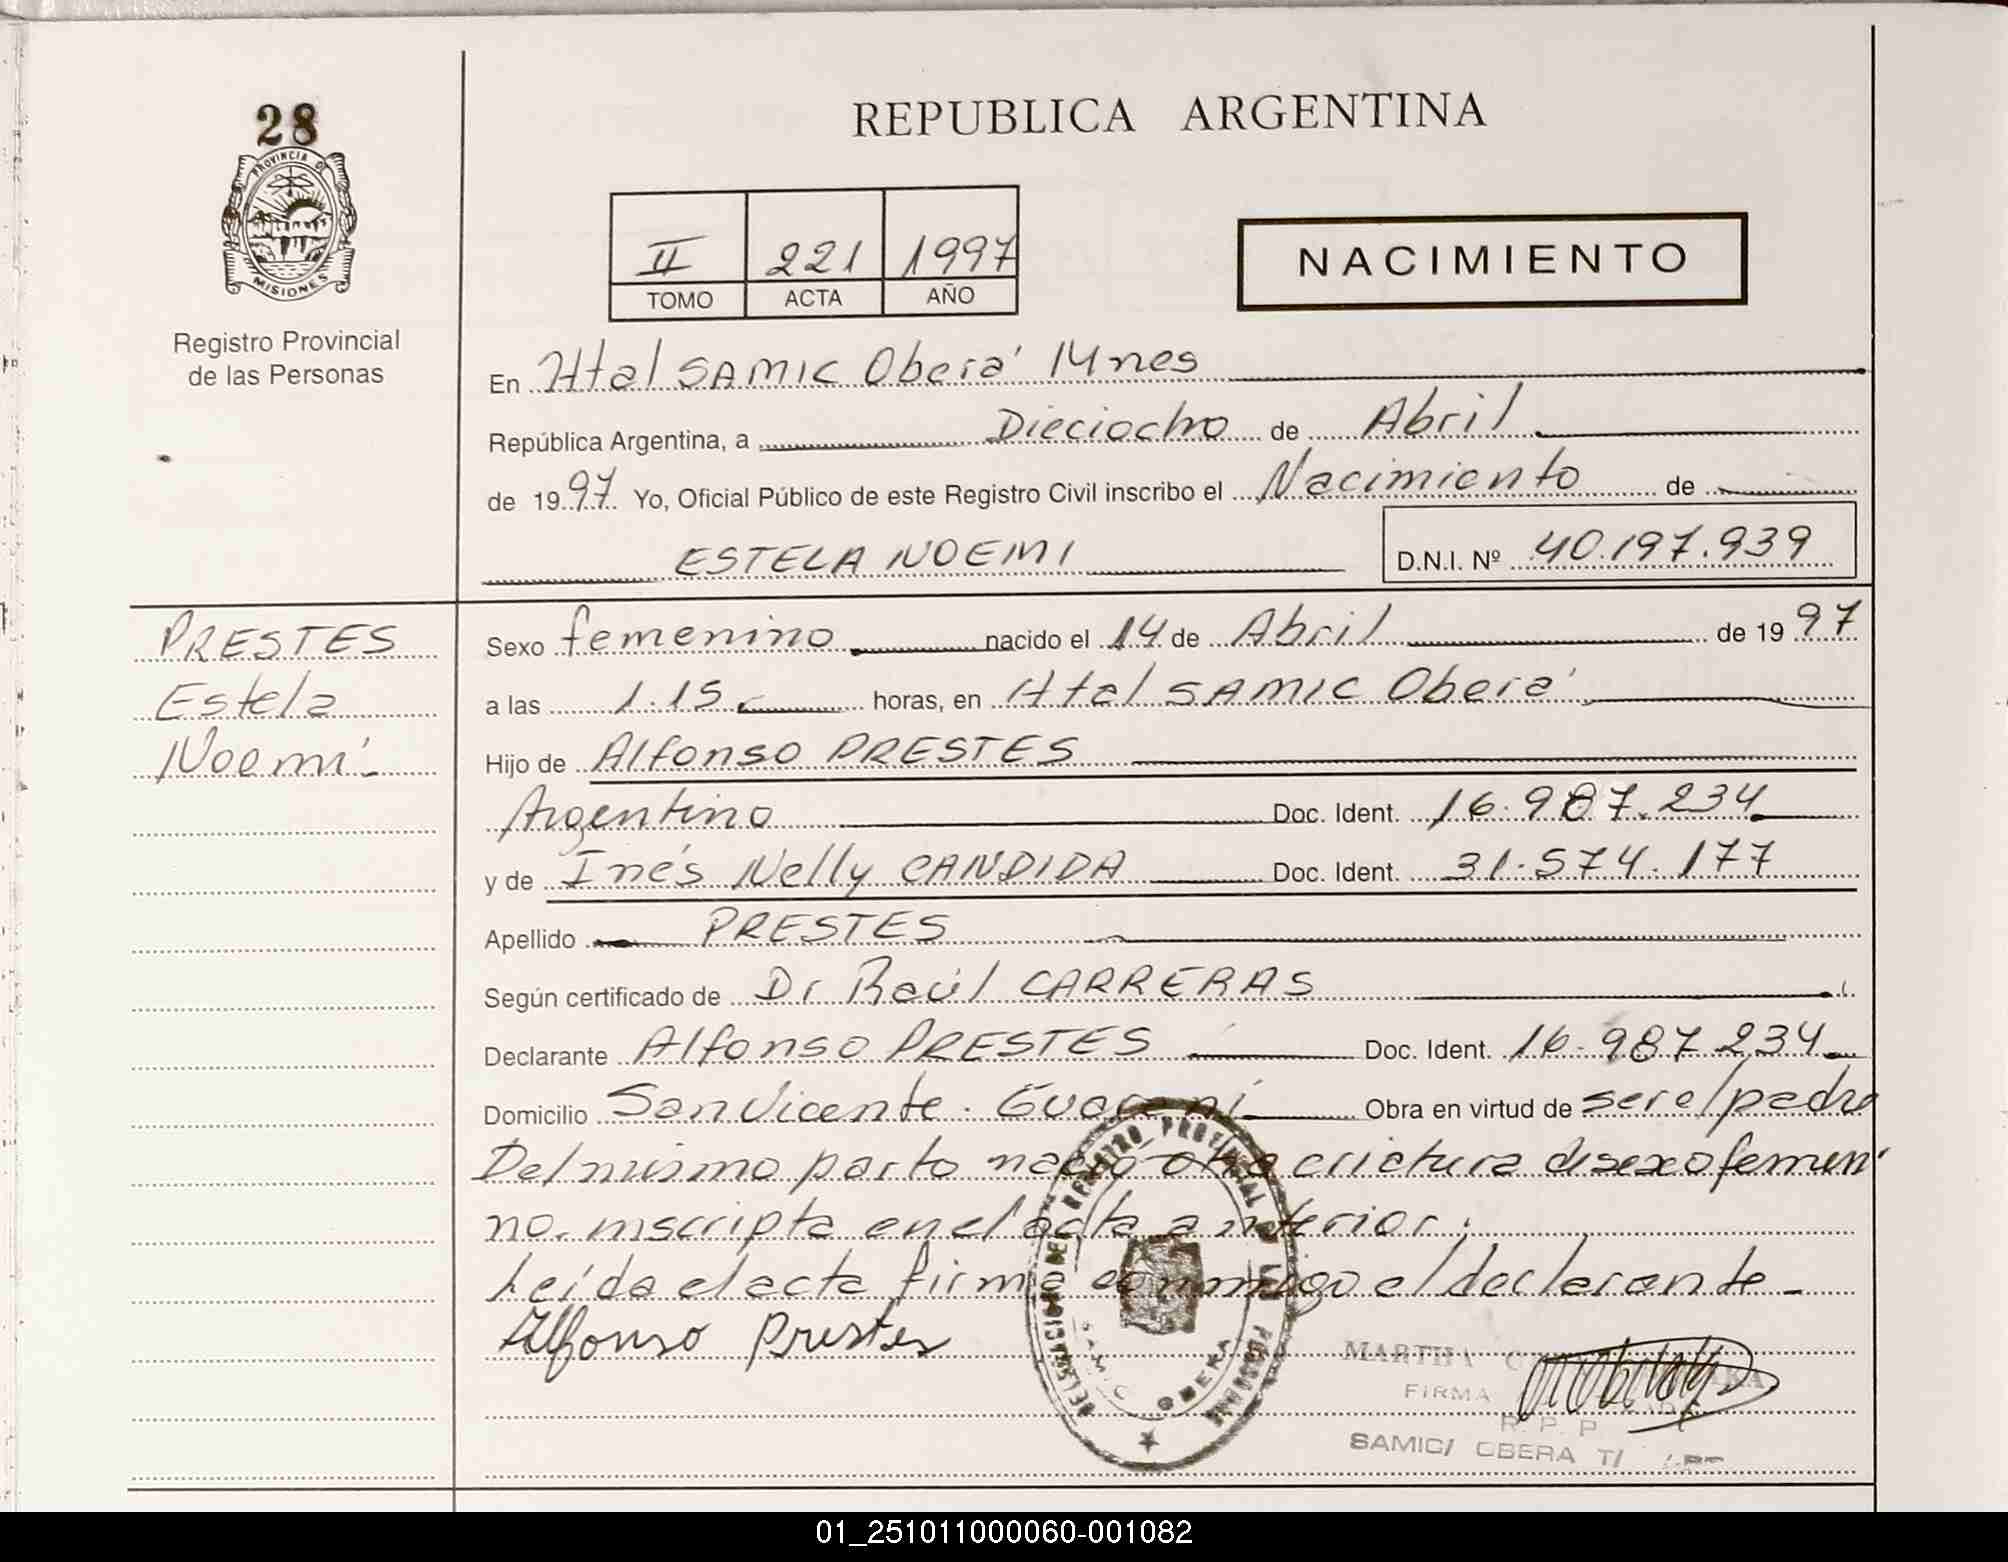 28
PROVINCIA DE
MISIONES
Registro Provincial
de las Personas
REPUBLICA ARGENTINA
II 221 1997
TOMO ACTA AÑO
NACIMIENTO
En Htal SAMIC Oberá Mnes
República Argentina, a Dieciocho de Abril
de 1997 Yo, Oficial Público de este Registro Civil inscribo el Nacimiento de
ESTELA NOEMI D.N.I. Nº 40.197.939
PRESTES
Estela
Noemí
Sexo femenino nacido el 14 de Abril de 1997
a las 1.15 horas, en Htal SAMIC Oberá
Hijo de Alfonso PRESTES
Argentino Doc. Ident. 16.987.234
y de Inés Nelly CANDIDA Doc. Ident. 31.574.177
Apellido PRESTES
Según certificado de Dr Raúl CARRERAS
Declarante Alfonso PRESTES Doc. Ident. 16.987.234
Domicilio San Vicente. Guaraní Obra en virtud de ser el padre
Del mismo parto nació otra criatura de sexo femeni
no. inscripta en el acta anterior.
Leída el acta firma conmigo el declarante
Alfonso Prestes
SAMIC OBERA
MARTHA
FIRMA
R. P. P
SAMIC/ OBERA
01_251011000060-001082